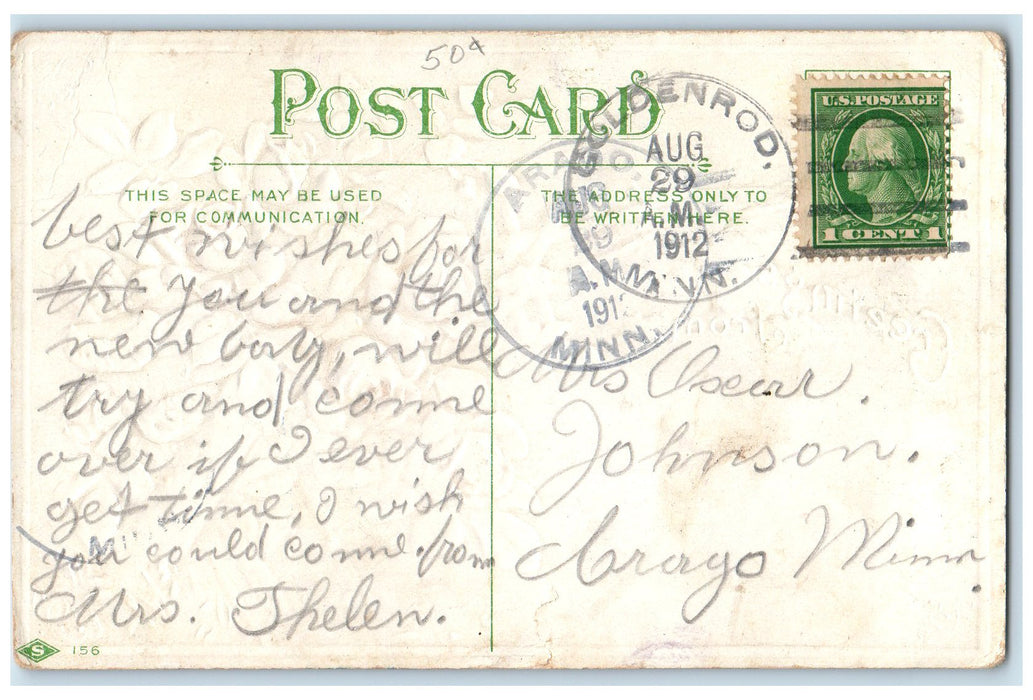 50¢
POST CARD
THIS SPACE MAY BE USED
FOR COMMUNICATION.
THE ADDRESS ONLY TO
BE WRITTEN HERE.
GOLDENROD,
AUG
29
A.M.
1912
MINN.
ARAGO,
A.M.
191
MINN.
U.S. POSTAGE
1 CENT 1
best wishes for
the you and the
new baby, will
try and come
over if I ever
get time, I wish
you could come. from
Mrs. Thelen.
Mrs Oscar.
Johnson.
Arago Minn.
S 156